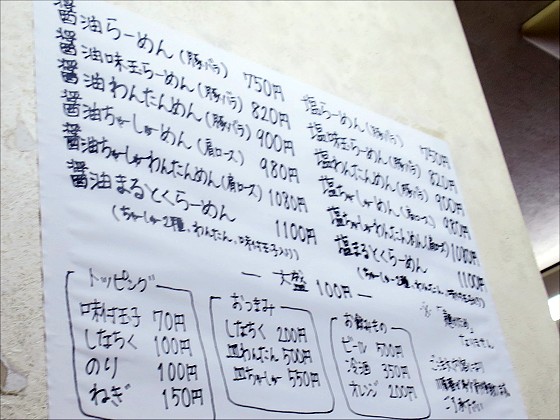 醤油らーめん(豚バラ) 750円
醤油味玉らーめん(豚バラ) 820円
醤油わんたんめん(豚バラ) 900円
醤油ちゃーしゅーめん(肩ロース) 980円
醤油ちゃーしゅーわんたんめん(肩ロース) 1080円
醤油まるとくらーめん 1100円
(ちゃーしゅー2種、わんたん、味付玉子入り)
塩らーめん(豚バラ) 750円
塩味玉らーめん(豚バラ) 820円
塩わんたんめん(豚バラ) 900円
塩ちゃーしゅーめん(肩ロース) 980円
塩ちゃーしゅーわんたんめん(肩ロース) 1080円
塩まるとくらーめん 1100円
(ちゃーしゅー2種、わんたん、味付玉子入り)
— 大盛 100円 —
トッピング
味付玉子 70円
しなちく 100円
のり 100円
ねぎ 150円
おつまみ
しなちく 200円
皿わんたん 500円
皿ちゃーしゅー 550円
お飲みもの
ビール 500円
冷酒 350円
オレンジ 200円